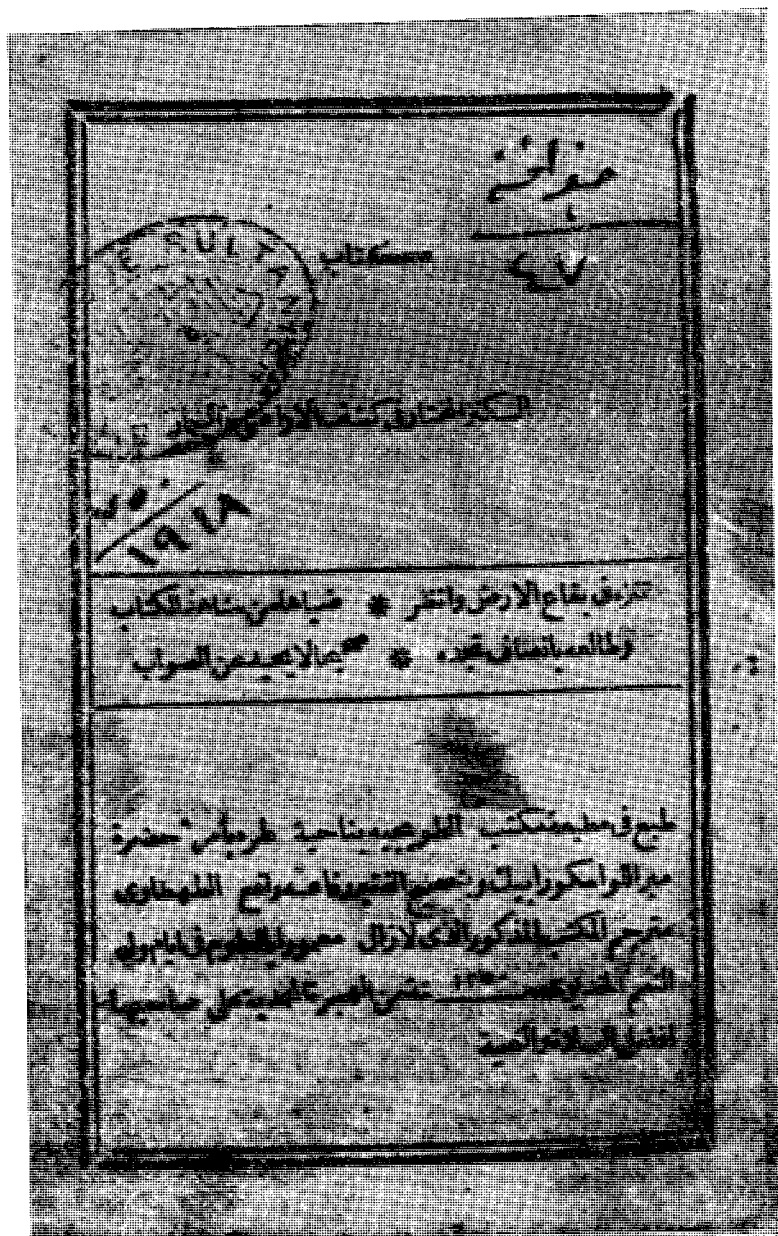 جغرافية
٤٧
كتاب
الكنز المختار في كشف الاراضي والبحار
SULTAN
٧٥٠
١٩١٨
تنزه في بقاع الارض وانظر * ضياها من سنا هذا الكتاب
وطالعه بانصاف تجده * صحيحا لا يحيد عن الصواب
طبع في مطبعة مكتب الطوبجيه بناحية طره بأمر حضرة
ميرالوا سكورا بيك وتصحيح الفقير رفاعه رافع الطهطاوى
مترجم المكتب المذكور الذى لازال معمورا بالعلوم فى ايام ولى
النعم ١٢٥٠ من الهجرة على صاحبها
افضل الصلاة والتحية